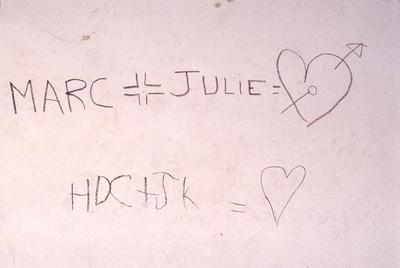 MARC + JULIE =
HDC+JK =